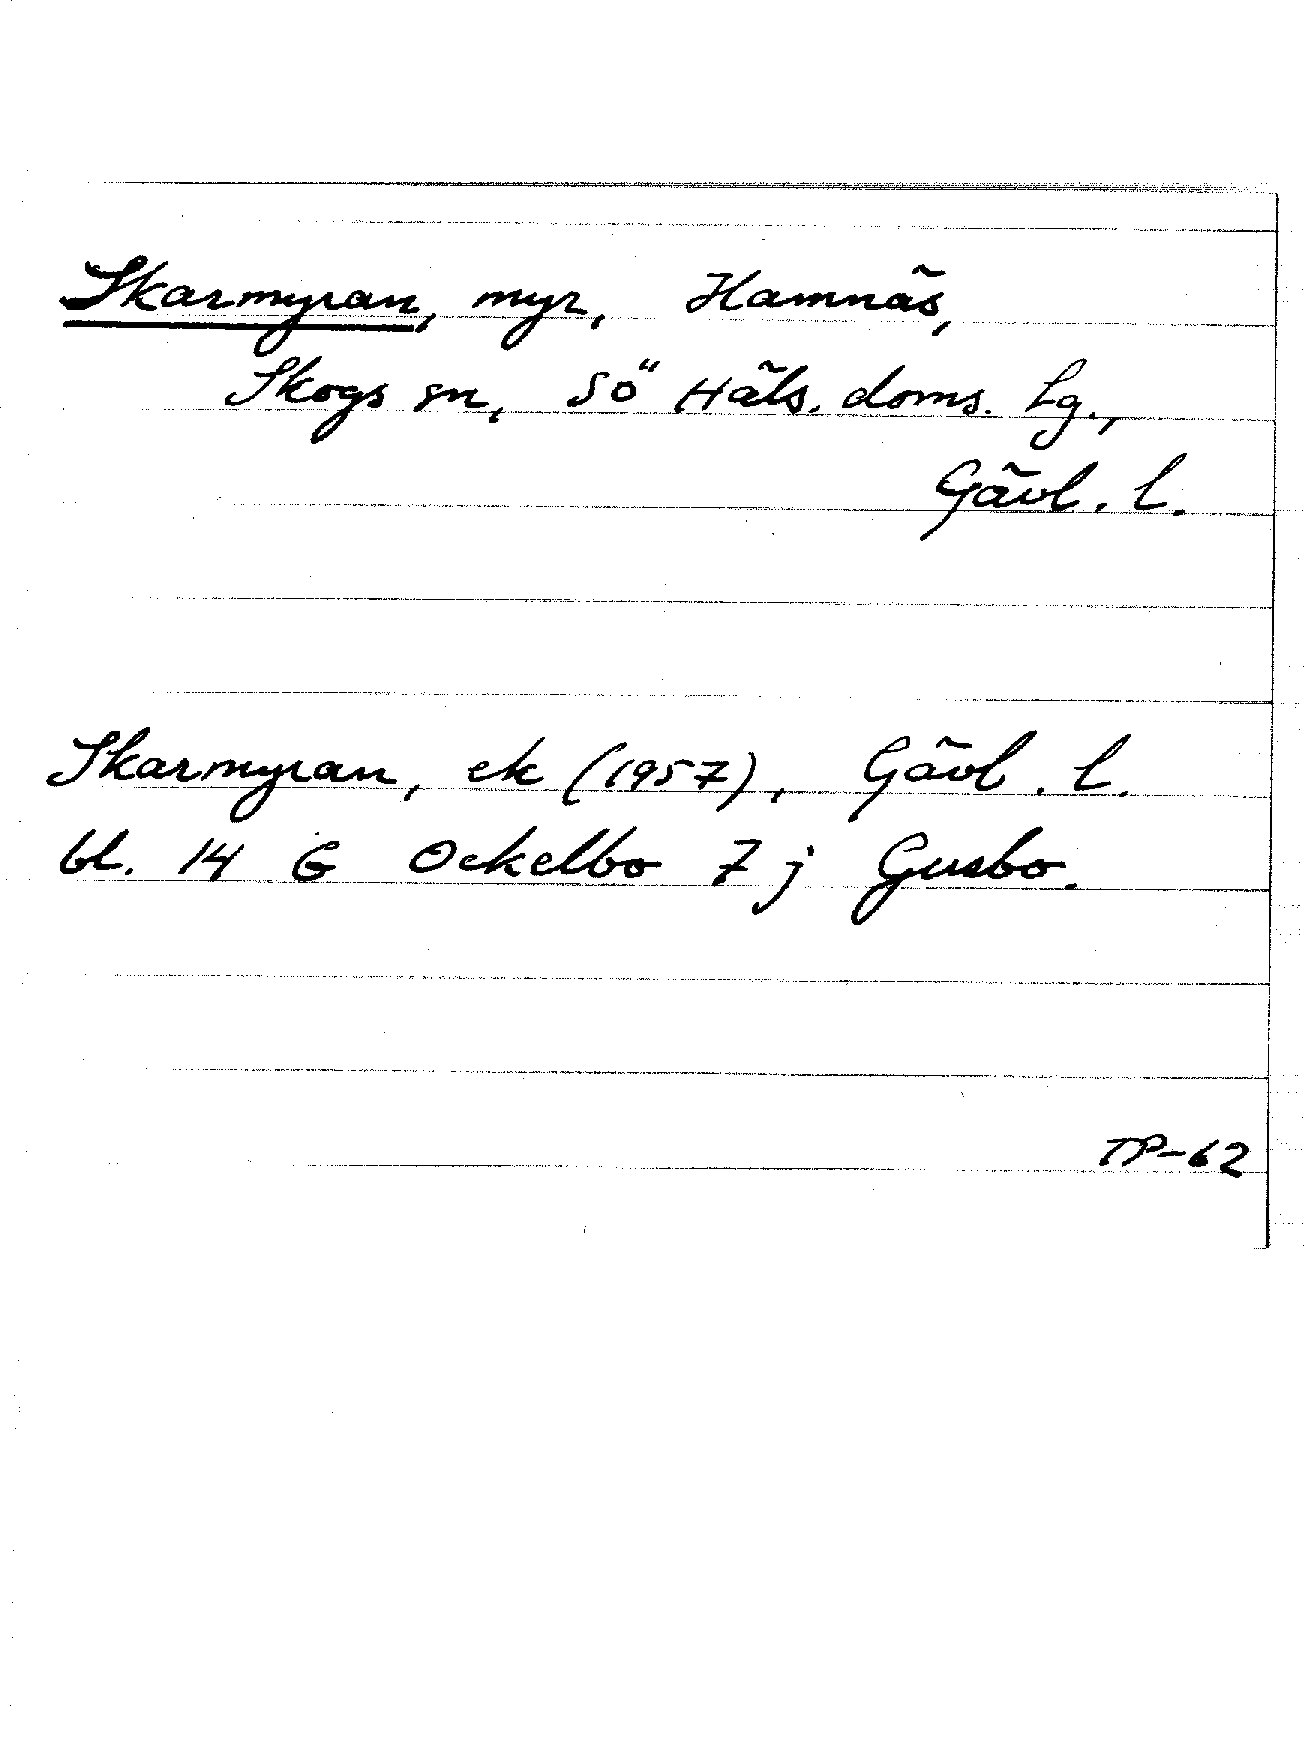 Skarmyran, myr, Hamnäs,
Skogs sn, Sö Häls. doms. Lg.,
Gävl. l.
Skarmyran, ek (1957), Gävl. l.
bl. 14 G Ockelbo 7 j Gusbo.
TP-62